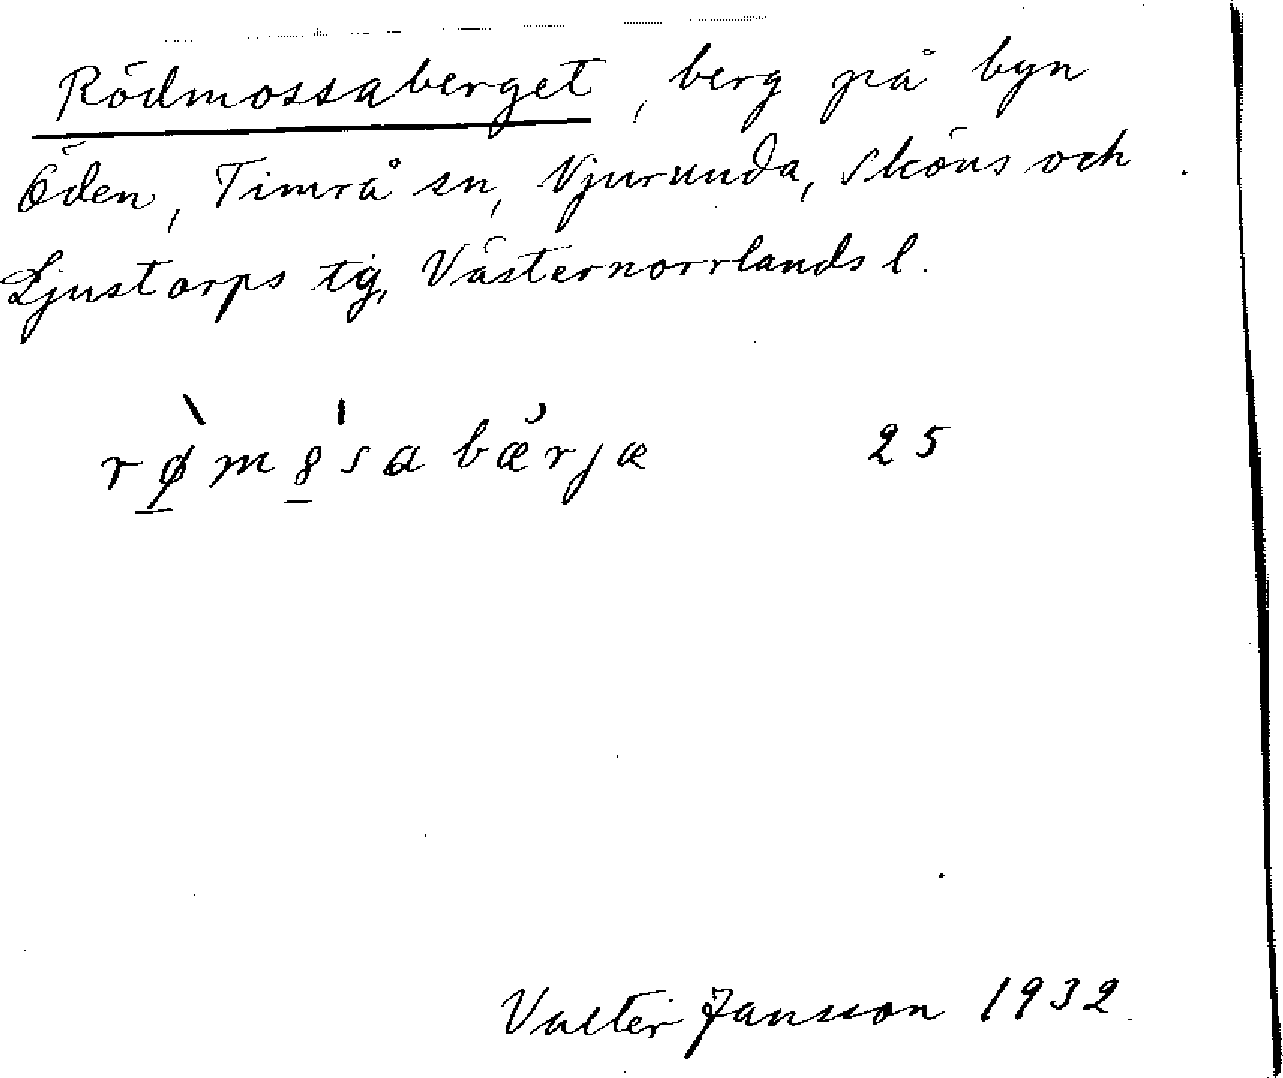 Rödmossaberget, berg på byn
Öden, Timrå sn, Njurunda, Sköns och
Ljustorps tg, Västernorrlands l.
rø̲̀mo̲̍sabærjæ 25
Valter Jansson 1932